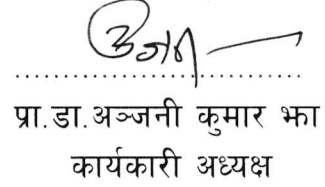 प्रा.डा.अञ्जनी कुमार झा
कार्यकारी अध्यक्ष